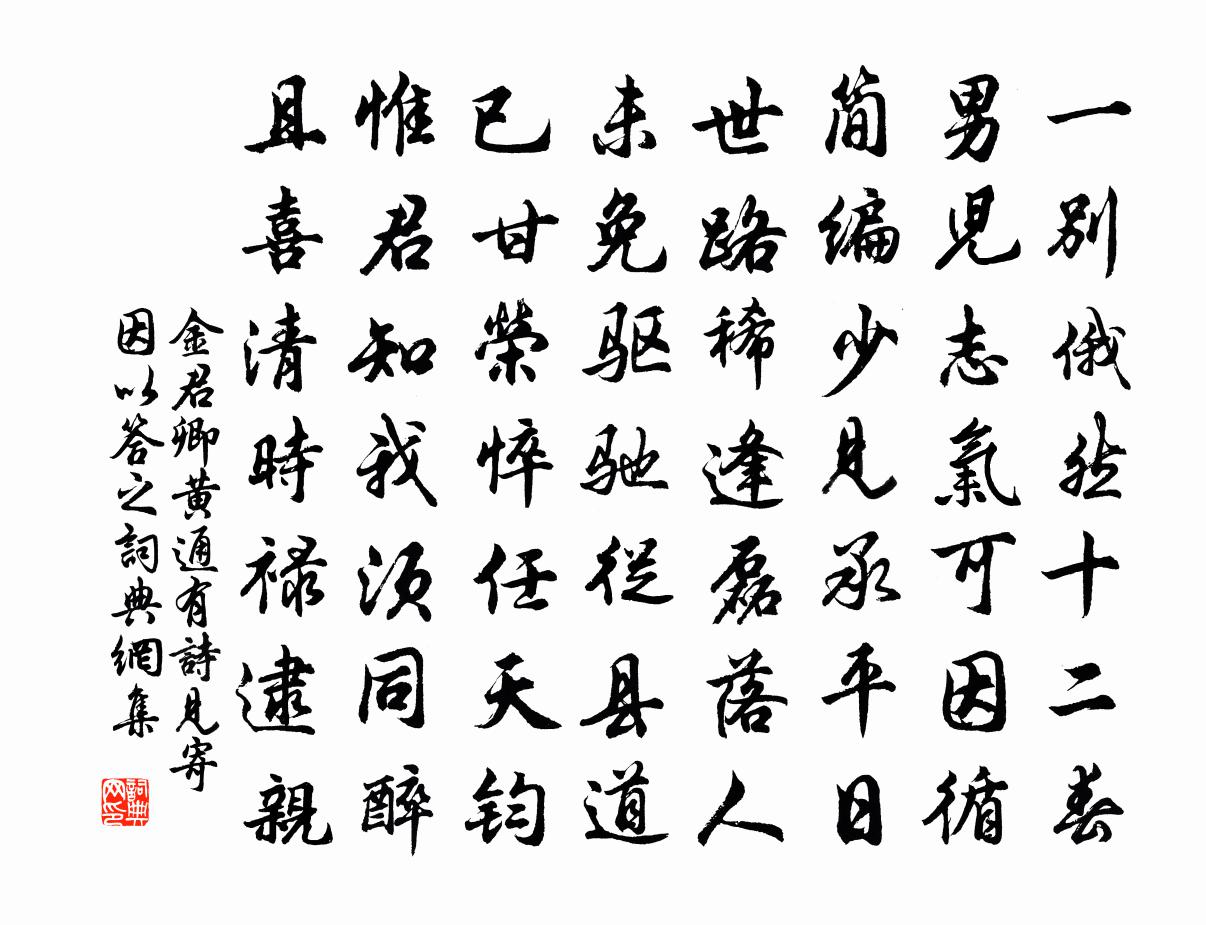 一別俄然十二春
男児志氣可因循
简編少見承平日
世路稀逢磊落人
未免驱驰從县道
已甘榮悴任天钧
惟君知我须同醉
且喜清時禄逮親
金君卿黄通有詩見寄
因以答之詞典網集
詞典
网印